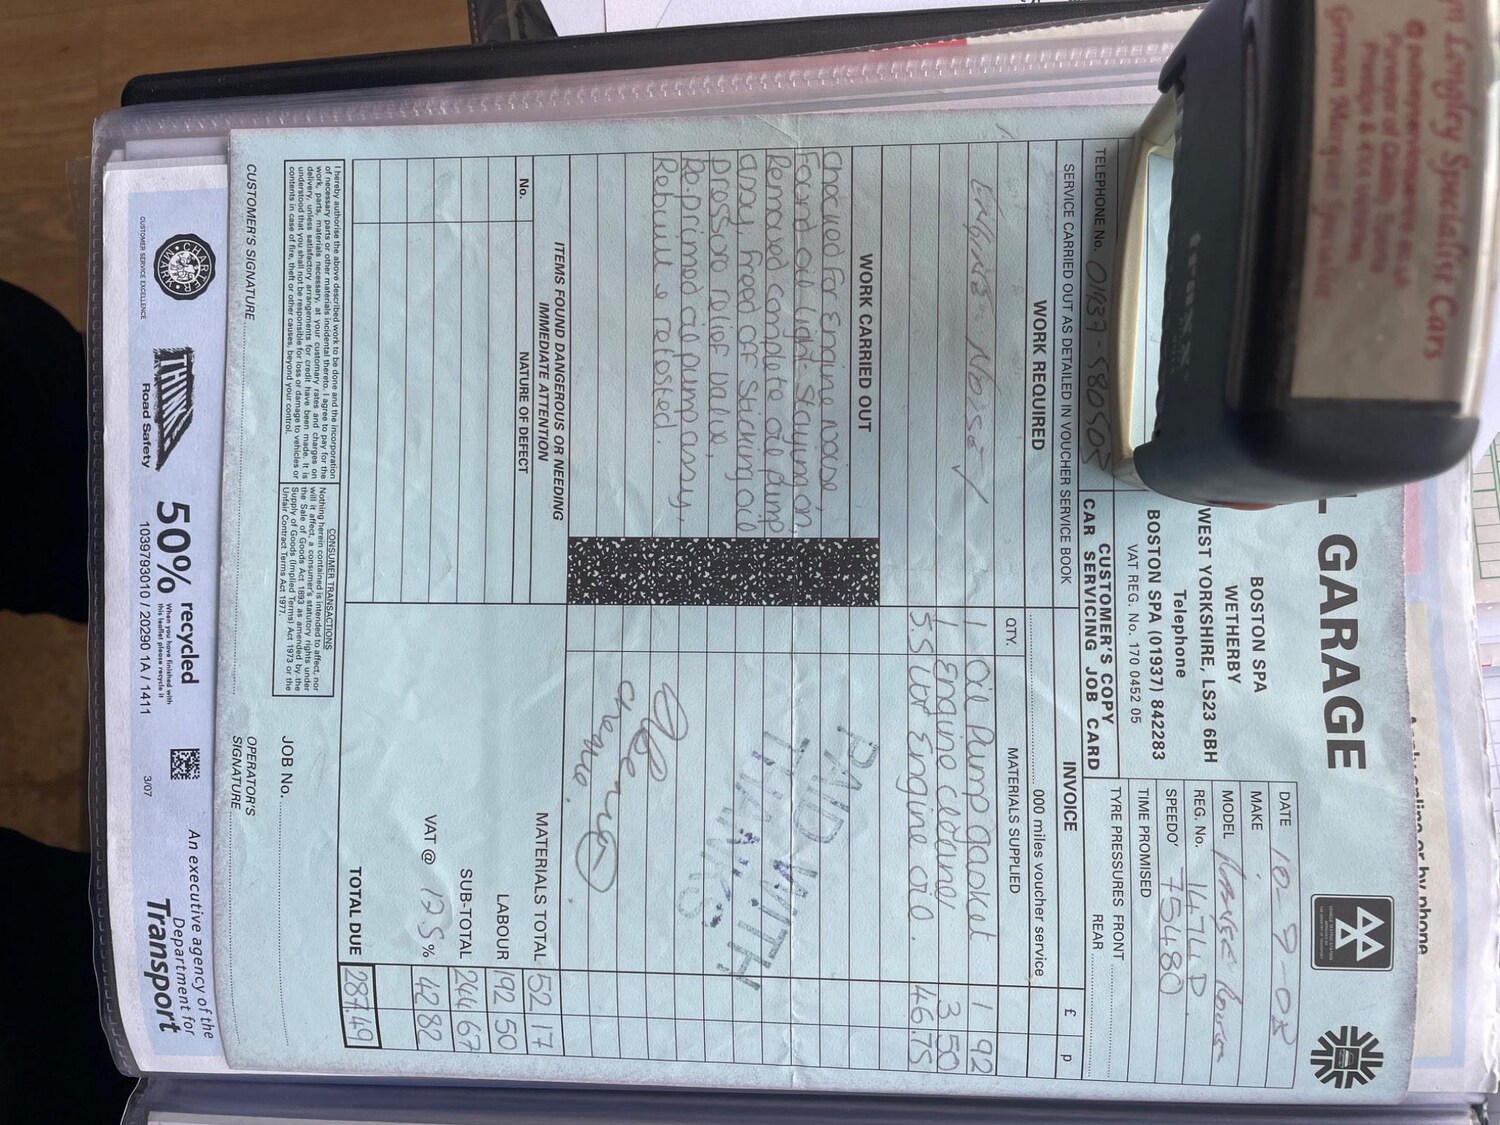 L GARAGE
BOSTON SPA
WETHERBY
WEST YORKSHIRE, LS23 6BH
Telephone
BOSTON SPA (01937) 842283
VAT REG. No. 170 0452 05
DATE 10-9-08
MAKE
MODEL Range Rover
REG. No. 147LLD
SPEEDO' 75480
TIME PROMISED
TYRE PRESSURES FRONT
REAR
TELEPHONE No. 01937-580505
CUSTOMER'S COPY
CAR SERVICING JOB CARD
SERVICE CARRIED OUT AS DETAILED IN VOUCHER SERVICE BOOK
INVOICE
000 miles voucher service
£ p
WORK REQUIRED
QTY. MATERIALS SUPPLIED
ENGINE NOISEY
1 Oil Pump gasket 1 92
1 Engine cleaner 3 50
5.5 Ltr Engine oil. 46.75
WORK CARRIED OUT
Checked for Engine noise,
Found oil light staying on
Removed complete oil pump
assay, freed off sticking oil
pressure relief valve,
Re-primed oil pump assy,
Rebuilt & retested.
PAID WITH
THANKS
cheque.
ITEMS FOUND DANGEROUS OR NEEDING
IMMEDIATE ATTENTION
No. NATURE OF DEFECT
MATERIALS TOTAL 52 17
LABOUR 192 50
SUB-TOTAL 244 67
VAT @ 17.5 % 42 82
TOTAL DUE 287.49
I hereby authorise the above described work to be done and the incorporation
of necessary parts or other materials incidental thereto. I agree to pay for the
work, parts, materials necessary, at your customary rates and charges on
delivery, unless satisfactory arrangements for credit have been made. It is
understood that you shall not be responsible for loss or damage to vehicles or
contents in case of fire, theft or other causes, beyond your control.
CONSUMER TRANSACTIONS
Nothing herein contained is intended to affect, nor
will it affect, a consumer's statutory rights under
the Sale of Goods Act 1893 as amended by the
Supply of Goods (Implied Terms) Act 1973 or the
Unfair Contract Terms Act 1977.
JOB No.
CUSTOMER'S SIGNATURE
OPERATOR'S
SIGNATURE
CHARTER MARK
CUSTOMER SERVICE EXCELLENCE
THINK!
Road Safety
50% recycled
When you have finished with
this leaflet please recycle it
103979301O / 20290 1A / 1411
3/07
An executive agency of the
Department for
Transport
Longley Specialist Cars
Purveyor of Classic, Sports
Prestige & 4x4 vehicles
trodat